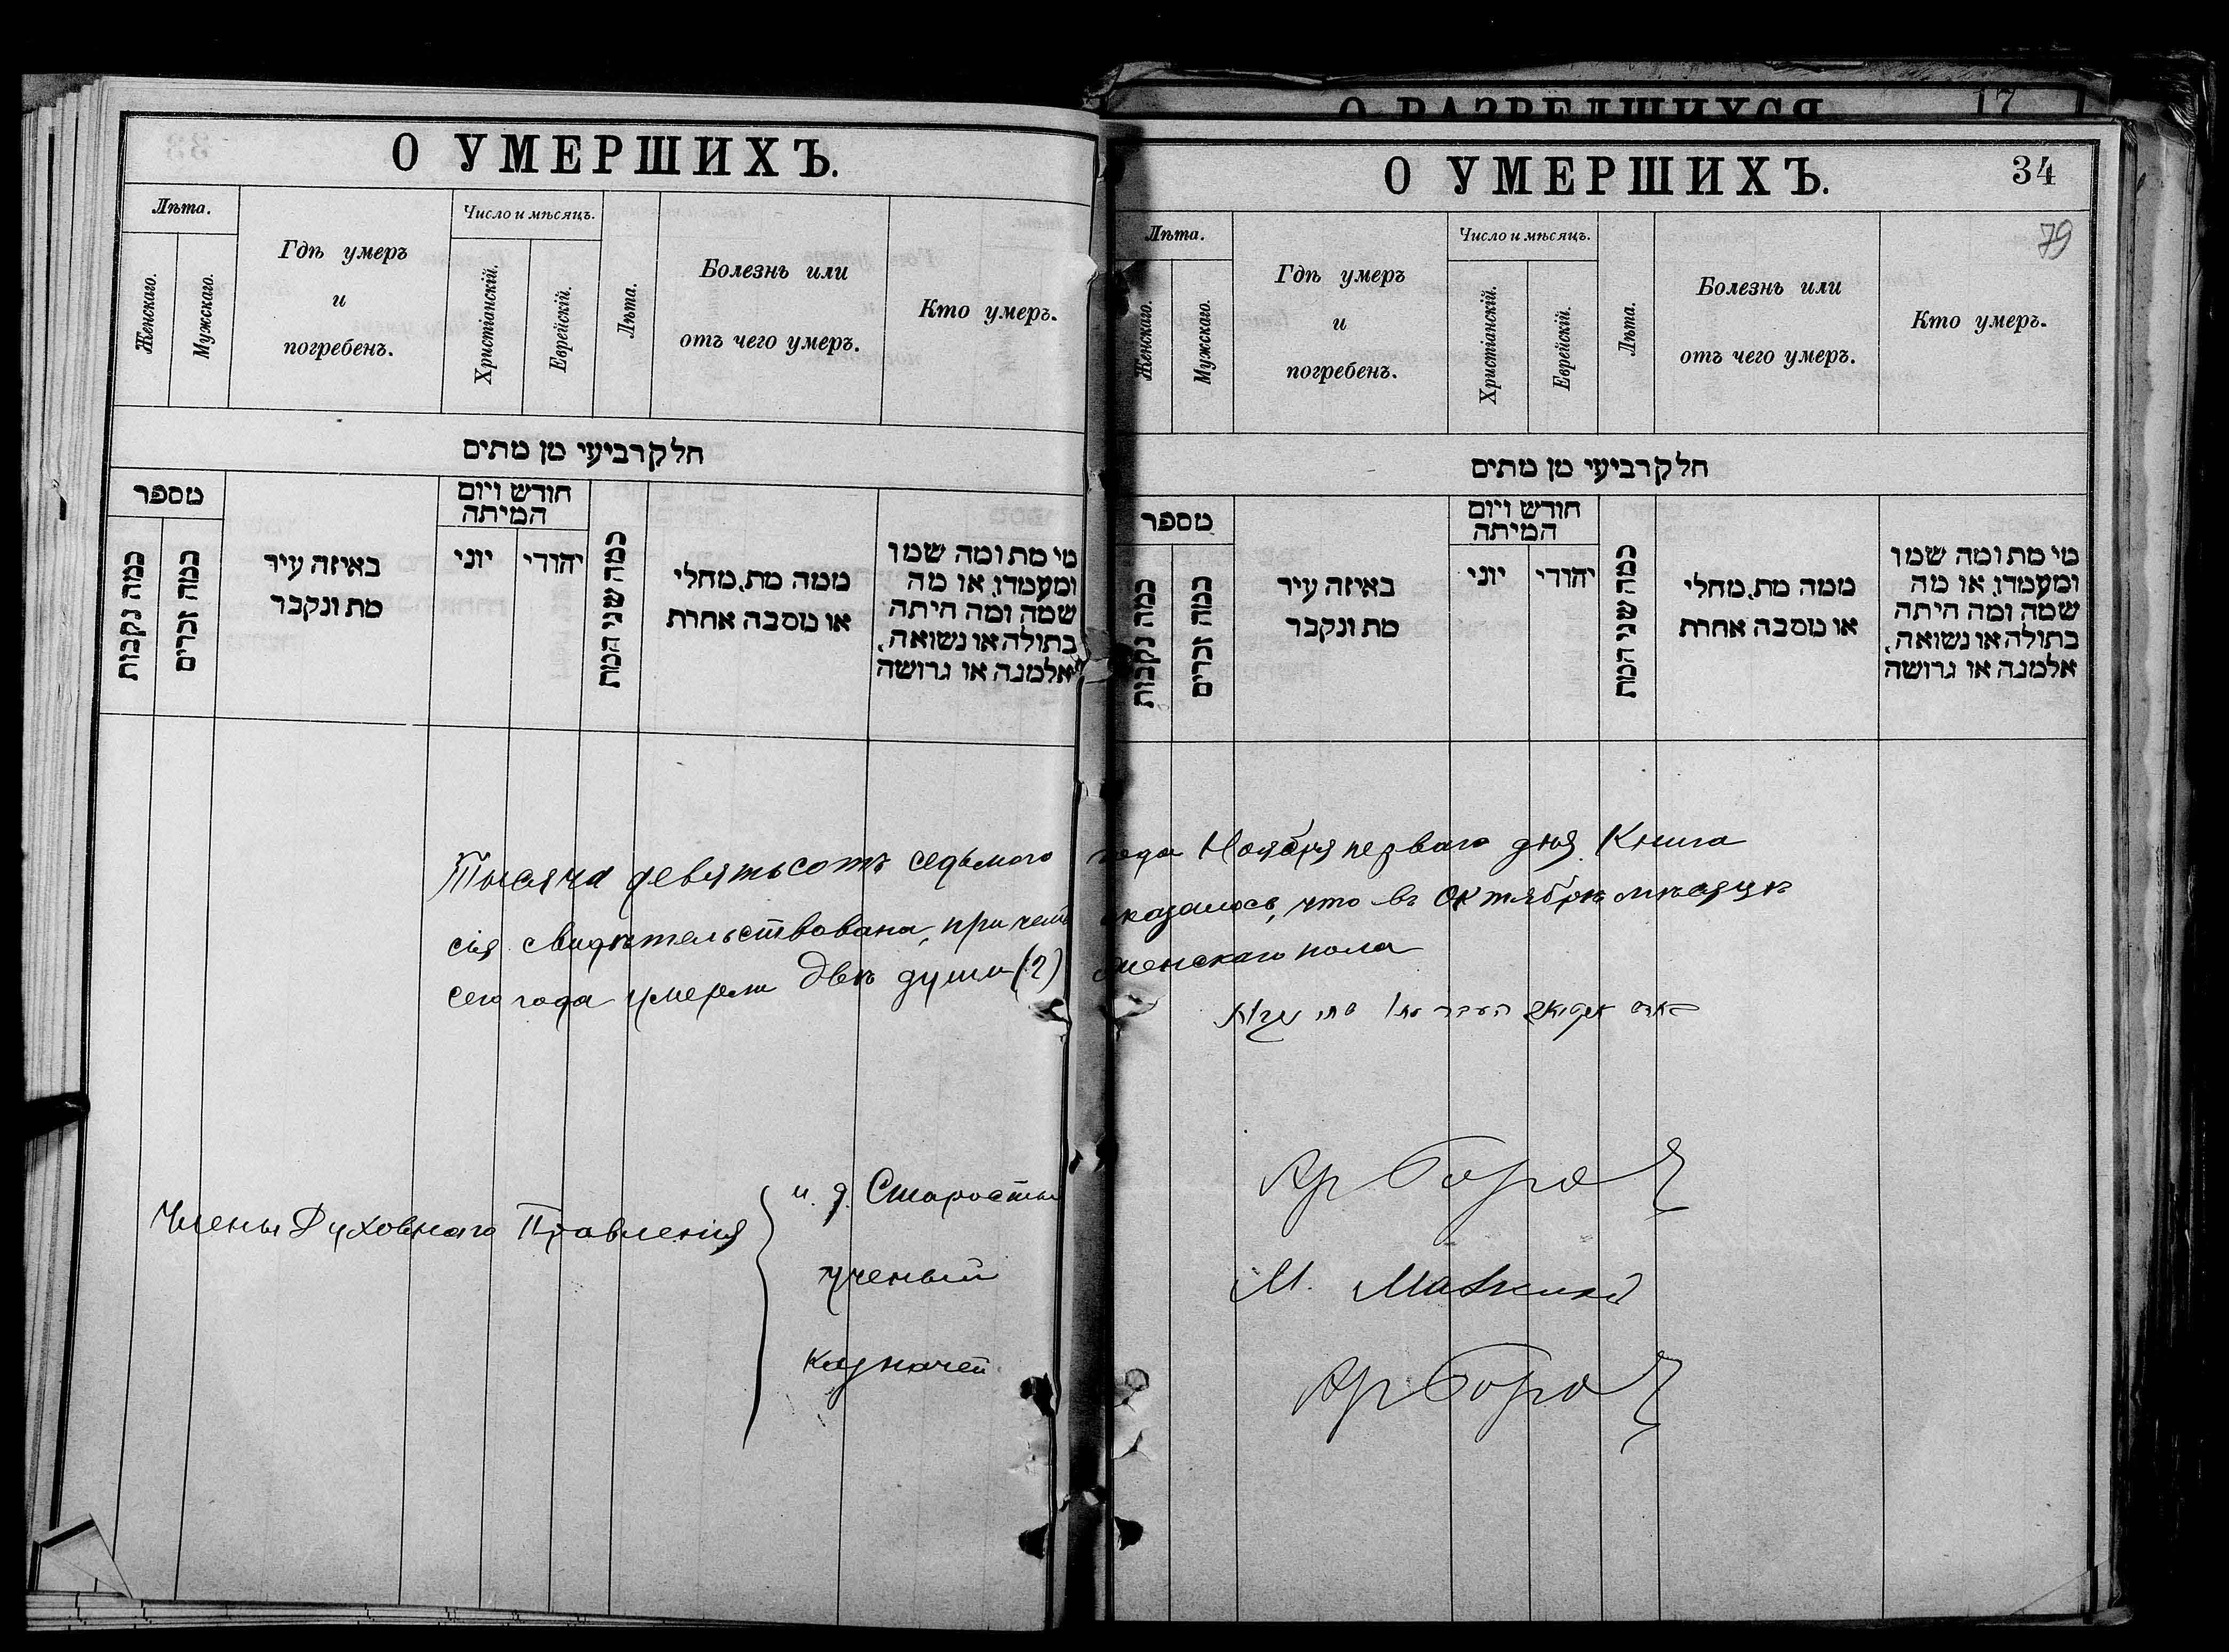 О РАЗВЕДШИХСЯ 17
О УМЕРШИХЪ.
Лѣта.
Женскаго.
Мужскаго.
Гдѣ умеръ
и
погребенъ.
Число и мѣсяцъ.
Христіанскій.
Еврейскій.
Лѣта.
Болезнь или
отъ чего умеръ.
Кто умеръ.
חלק רביעי מן מתים
מספר
כמה נקבות
כמה זכרים
באיזה עיר
מת ונקבר
חודש ויום
המיתה
יוני
יהודי
כמה שני המת
ממה מת, מחלי
או מסבה אחרת
מי מת ומה שמו
ומעמדו, או מה
שמה ומה היתה
בתולה או נשואה,
אלמנה או גרושה
О УМЕРШИХЪ.
34
79
Лѣта.
Женскаго.
Мужскаго.
Гдѣ умеръ
и
погребенъ.
Число и мѣсяцъ.
Христіанскій.
Еврейскій.
Лѣта.
Болезнь или
отъ чего умеръ.
Кто умеръ.
חלק רביעי מן מתים
מספר
כמה נקבות
כמה זכרים
באיזה עיר
מת ונקבר
חודש ויום
המיתה
יוני
יהודי
כמה שני המת
ממה מת, מחלי
או מסבה אחרת
מי מת ומה שמו
ומעמדו, או מה
שמה ומה היתה
בתולה או נשואה,
אלמנה או גרושה
Тысяча девятьсотъ седьмого года Ноября перваго дня. Книга
сія свидѣтельствована, при чемъ оказалось, что въ Октябрѣ мѣсяцѣ
сего года умерли двѣ души (2) женскаго пола
Члены Духовнаго Правленія
и. д. Старосты
ученый
М.
казначей